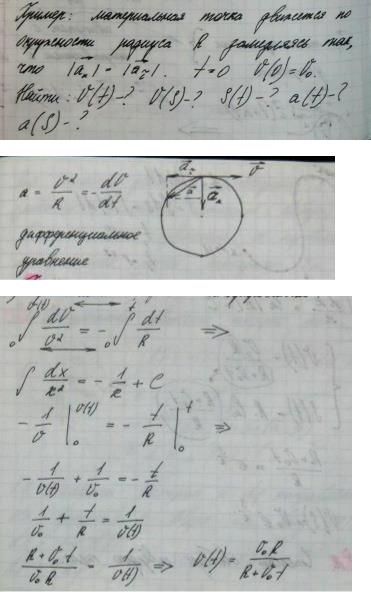 Пример: материальная точка движется по
окружности радиуса R замедляясь так,
что |a⃗ₙ| = |a⃗_τ|. t=0 V(0)=V₀.
Найти: V(t)-? V(S)-? S(t)-? a(t)-?
a(S)-?
a⃗_τ V⃗
a = V²/R = -dV/dt a⃗ a⃗ₙ
дифференциальное
уравнение
₀∫^V(t) dV/V² = - ₀∫^t dt/R ⇒
∫ dx/x² = -1/x + C
-1/V |₀^V(t) = -t/R |₀^t ⇒
-1/V(t) + 1/V₀ = -t/R
1/V₀ + t/R = 1/V(t)
(R+V₀t)/(V₀R) = 1/V(t) ⇒ V(t) = V₀R/(R+V₀t)